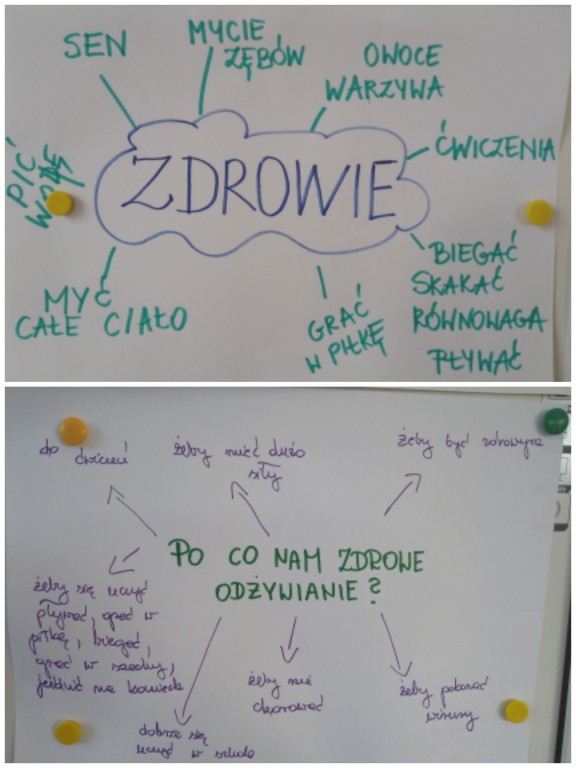 SEN
MYCIE
ZĘBÓW
OWOCE
WARZYWA
ĆWICZENIA
PIĆ
WODĘ
ZDROWIE
BIEGAĆ
SKAKAĆ
RÓWNOWAGA
PŁYWAĆ
MYĆ
CAŁE CIAŁO
GRAĆ
W PIŁKĘ
do ćwiczeń
żeby mieć dużo
siły
żeby być zdrowym
PO CO NAM ZDROWE
ODŻYWIANIE?
żeby się uczyć
pływać, grać w
piłkę, biegać,
grać w szachy,
jeździć na
żeby nie
chorować
żeby pokonać
wirusy
dobrze się
uczyć w szkole